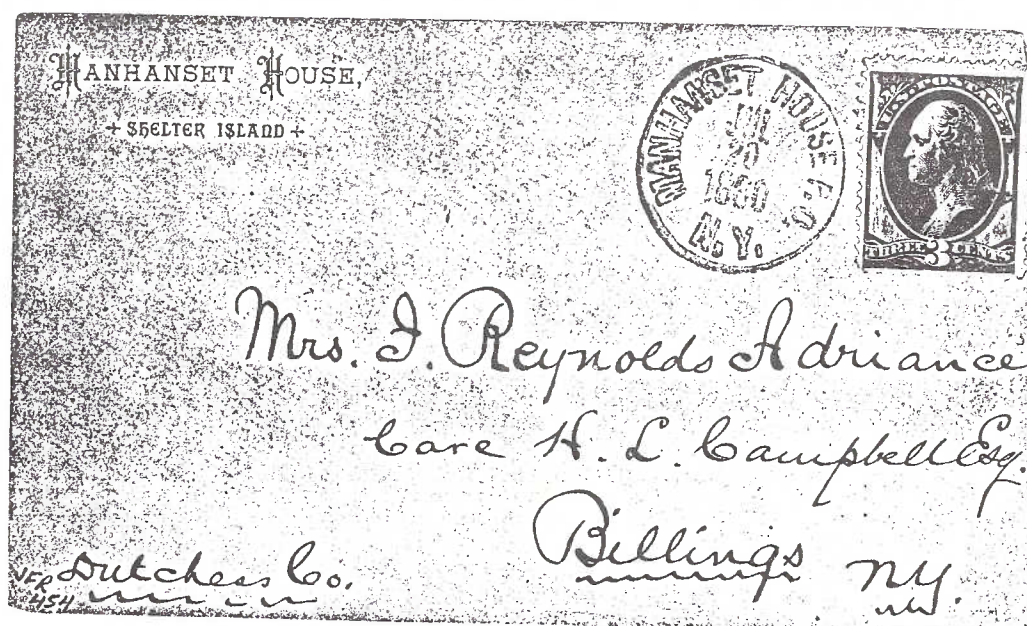 MANHANSET HOUSE,
+ SHELTER ISLAND +
MANHANSET HOUSE P.O.
JUL
20
1880
N.Y.
U.S. POSTAGE
THREE 3 CENTS
Mrs. I. Reynolds Adriance
Care H. L. Campbell Esq.
Billings
NY.
Dutchess Co.